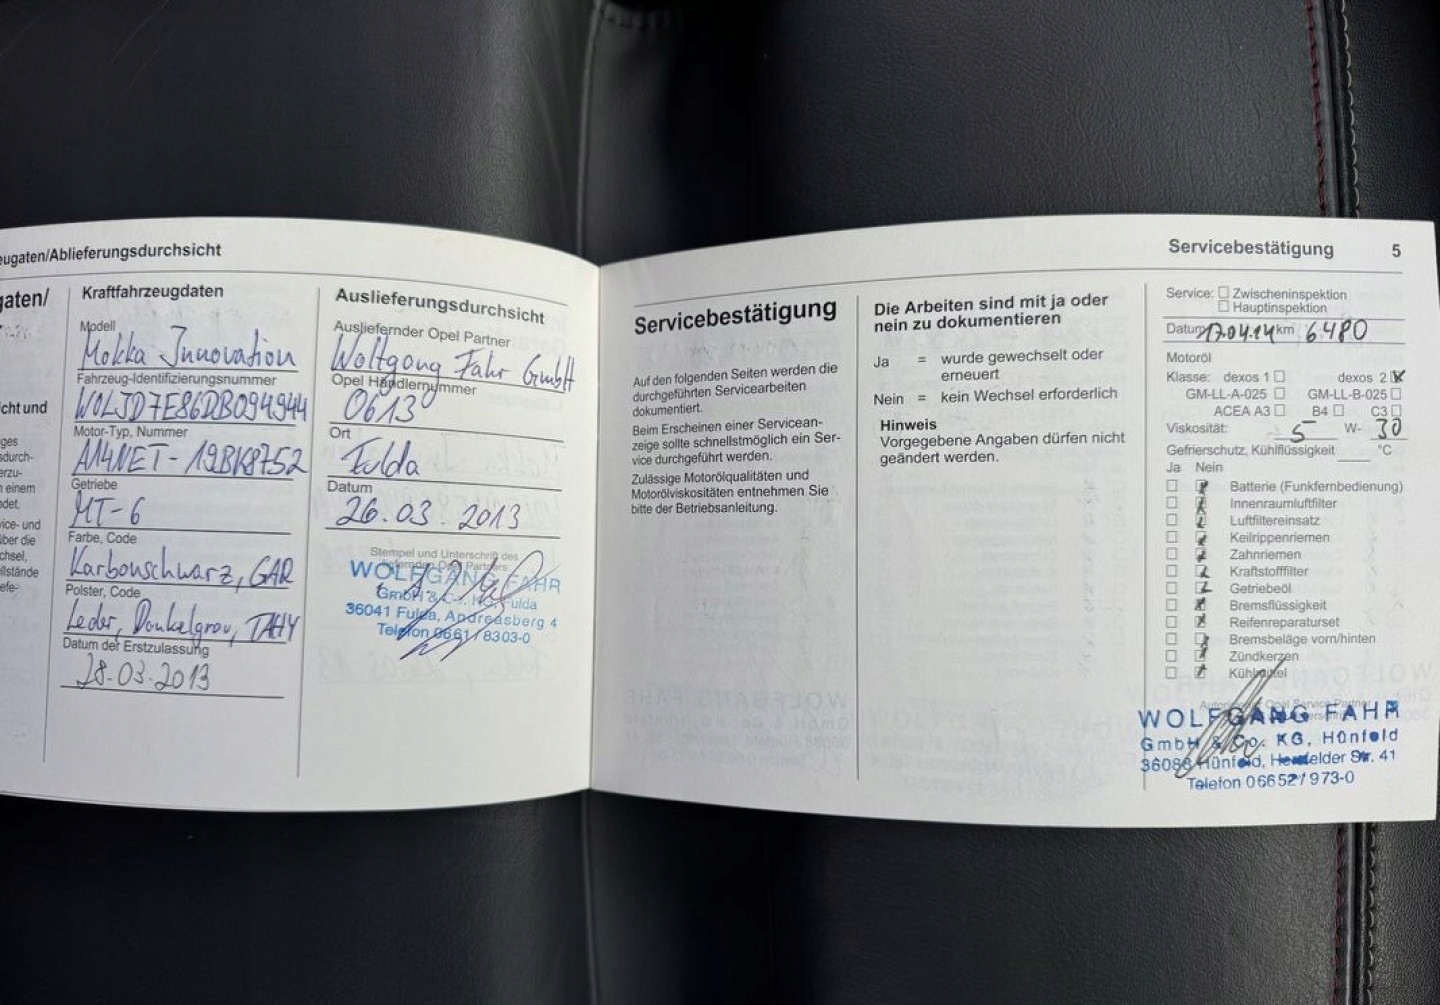 eugaten/Ablieferungsdurchsicht
gaten/
cht und
ges
sdurch-
erzu-
n einem
ndet.
vice- und
über die
chsel,
llstände
efe-
Kraftfahrzeugdaten
Modell
Mokka Innovation
Fahrzeug-Identifizierungsnummer
W0LJD7E86DB094944
Motor-Typ, Nummer
A14NET-19BK8752
Getriebe
MT-6
Farbe, Code
Karbonschwarz, GAR
Polster, Code
Leder, Dunkelgrau, TAHY
Datum der Erstzulassung
28.03.2013
Auslieferungsdurchsicht
Ausliefernder Opel Partner
Wolfgang Fahr GmbH
Opel Händlernummer
0613
Ort
Fulda
Datum
26.03.2013
Stempel und Unterschrift des
WOLFGANG FAHR
GmbH & Co. KG, Fulda
36041 Fulda, Andreasberg 4
Telefon 0661/8303-0
Servicebestätigung
Auf den folgenden Seiten werden die
durchgeführten Servicearbeiten
dokumentiert.
Beim Erscheinen einer Servicean-
zeige sollte schnellstmöglich ein Ser-
vice durchgeführt werden.
Zulässige Motorölqualitäten und
Motorölviskositäten entnehmen Sie
bitte der Betriebsanleitung.
Die Arbeiten sind mit ja oder
nein zu dokumentieren
Ja = wurde gewechselt oder
erneuert
Nein = kein Wechsel erforderlich
Hinweis
Vorgegebene Angaben dürfen nicht
geändert werden.
Servicebestätigung 5
Service: Zwischeninspektion
Hauptinspektion
Datum 17.04.14 km 6480
Motoröl
Klasse: dexos 1 dexos 2
GM-LL-A-025 GM-LL-B-025
ACEA A3 B4 C3
Viskosität: 5 W- 30
Gefrierschutz, Kühlflüssigkeit °C
Ja Nein
Batterie (Funkfernbedienung)
Innenraumluftfilter
Luftfiltereinsatz
Keilrippenriemen
Zahnriemen
Kraftstofffilter
Getriebeöl
Bremsflüssigkeit
Reifenreparaturset
Bremsbeläge vorn/hinten
Zündkerzen
Kühlmittel
WOLFGANG FAHR
GmbH & Co. KG, Hünfeld
36088 Hünfeld, Hersfelder Str. 41
Telefon 06652/973-0